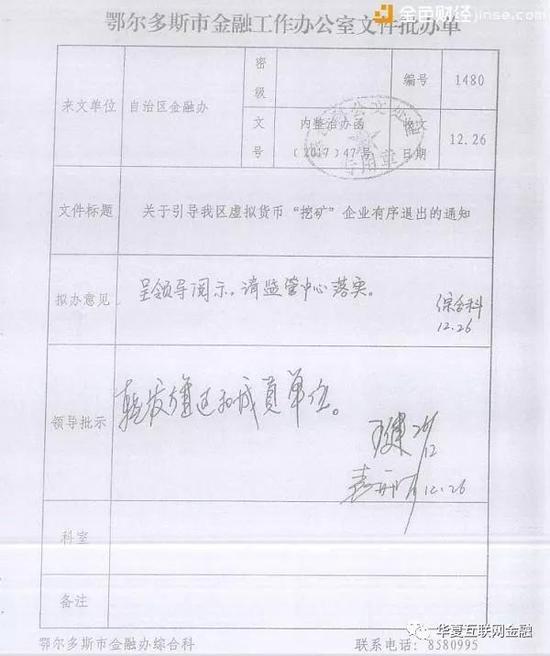 金色财经 jinse.com
鄂尔多斯市金融工作办公室文件批办单
来文单位 自治区金融办 密级 编号 1480
文号 内整治办函〔2017〕47号 收文日期 12.26
文件标题 关于引导我区虚拟货币“挖矿”企业有序退出的通知
拟办意见 呈领导阅示，请监管中心落实。
综合科
12.26
领导批示 转发旗区和成员单位。
12
12.26
科室
备注
鄂尔多斯市金融办综合科 联系电话：8580995
华夏互联网金融